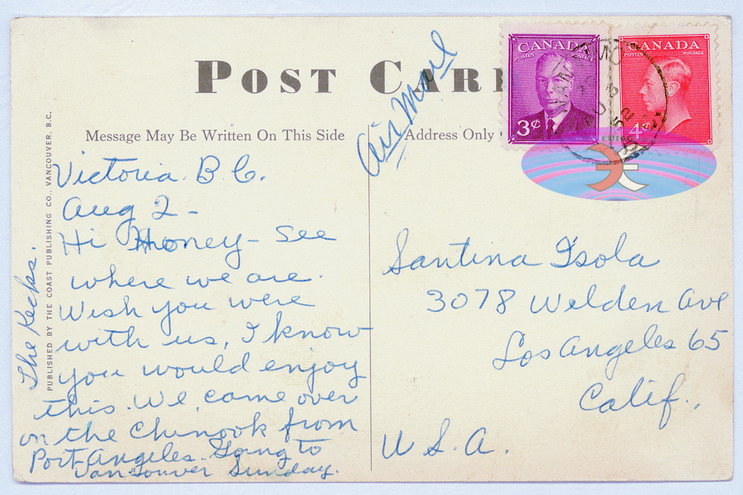 POST CAR
Message May Be Written On This Side
Address Only
Air Mail
CANADA
POSTES POSTAGE
3¢
CANADA
POSTES POSTAGE
4¢
PUBLISHED BY THE COAST PUBLISHING CO., VANCOUVER, B.C.
Victoria B.C.
Aug 2-
Hi Honey- See
where we are.
Wish you were
with us, I know
you would enjoy
this. We came over
on the Chinook from
Port Angeles. Going to
Vancouver Sunday.
The Kecks.
Santina Isola
3078 Welden Ave
Los Angeles 65
Calif.,
U.S.A.